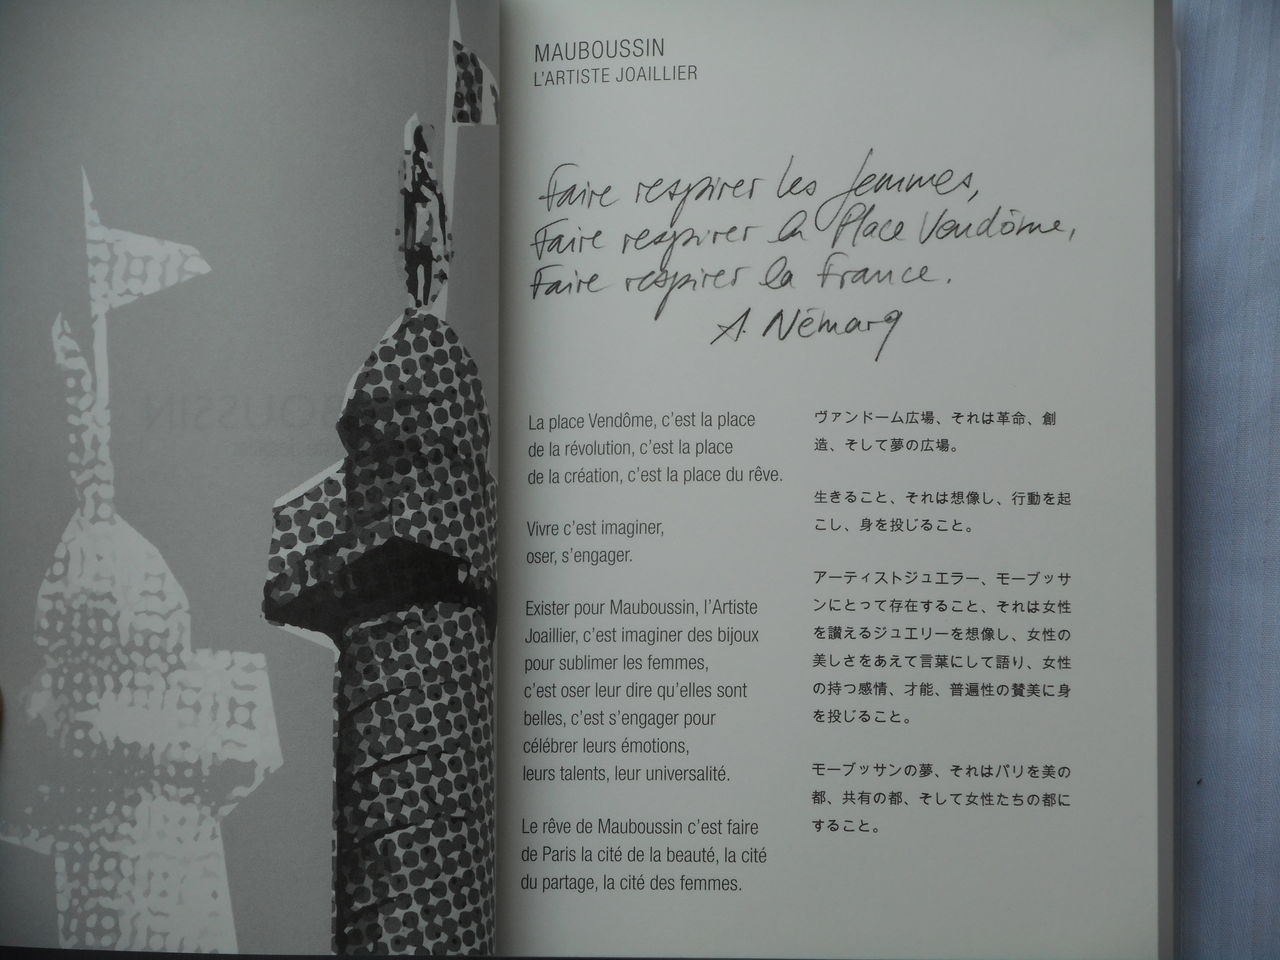 MAUBOUSSIN
L'ARTISTE JOAILLIER
Faire respirer les femmes,
Faire respirer la Place Vendôme,
Faire respirer la France.
A. Némarq
La place Vendôme, c'est la place
de la révolution, c'est la place
de la création, c'est la place du rêve.
Vivre c'est imaginer,
oser, s'engager.
Exister pour Mauboussin, l'Artiste
Joaillier, c'est imaginer des bijoux
pour sublimer les femmes,
c'est oser leur dire qu'elles sont
belles, c'est s'engager pour
célébrer leurs émotions,
leurs talents, leur universalité.
Le rêve de Mauboussin c'est faire
de Paris la cité de la beauté, la cité
du partage, la cité des femmes.
ヴァンドーム広場、それは革命、創
造、そして夢の広場。
生きること、それは想像し、行動を起
こし、身を投じること。
アーティストジュエラー、モーブッサ
ンにとって存在すること、それは女性
を讃えるジュエリーを想像し、女性の
美しさをあえて言葉にして語り、女性
の持つ感情、才能、普遍性の賛美に身
を投じること。
モーブッサンの夢、それはパリを美の
都、共有の都、そして女性たちの都に
すること。